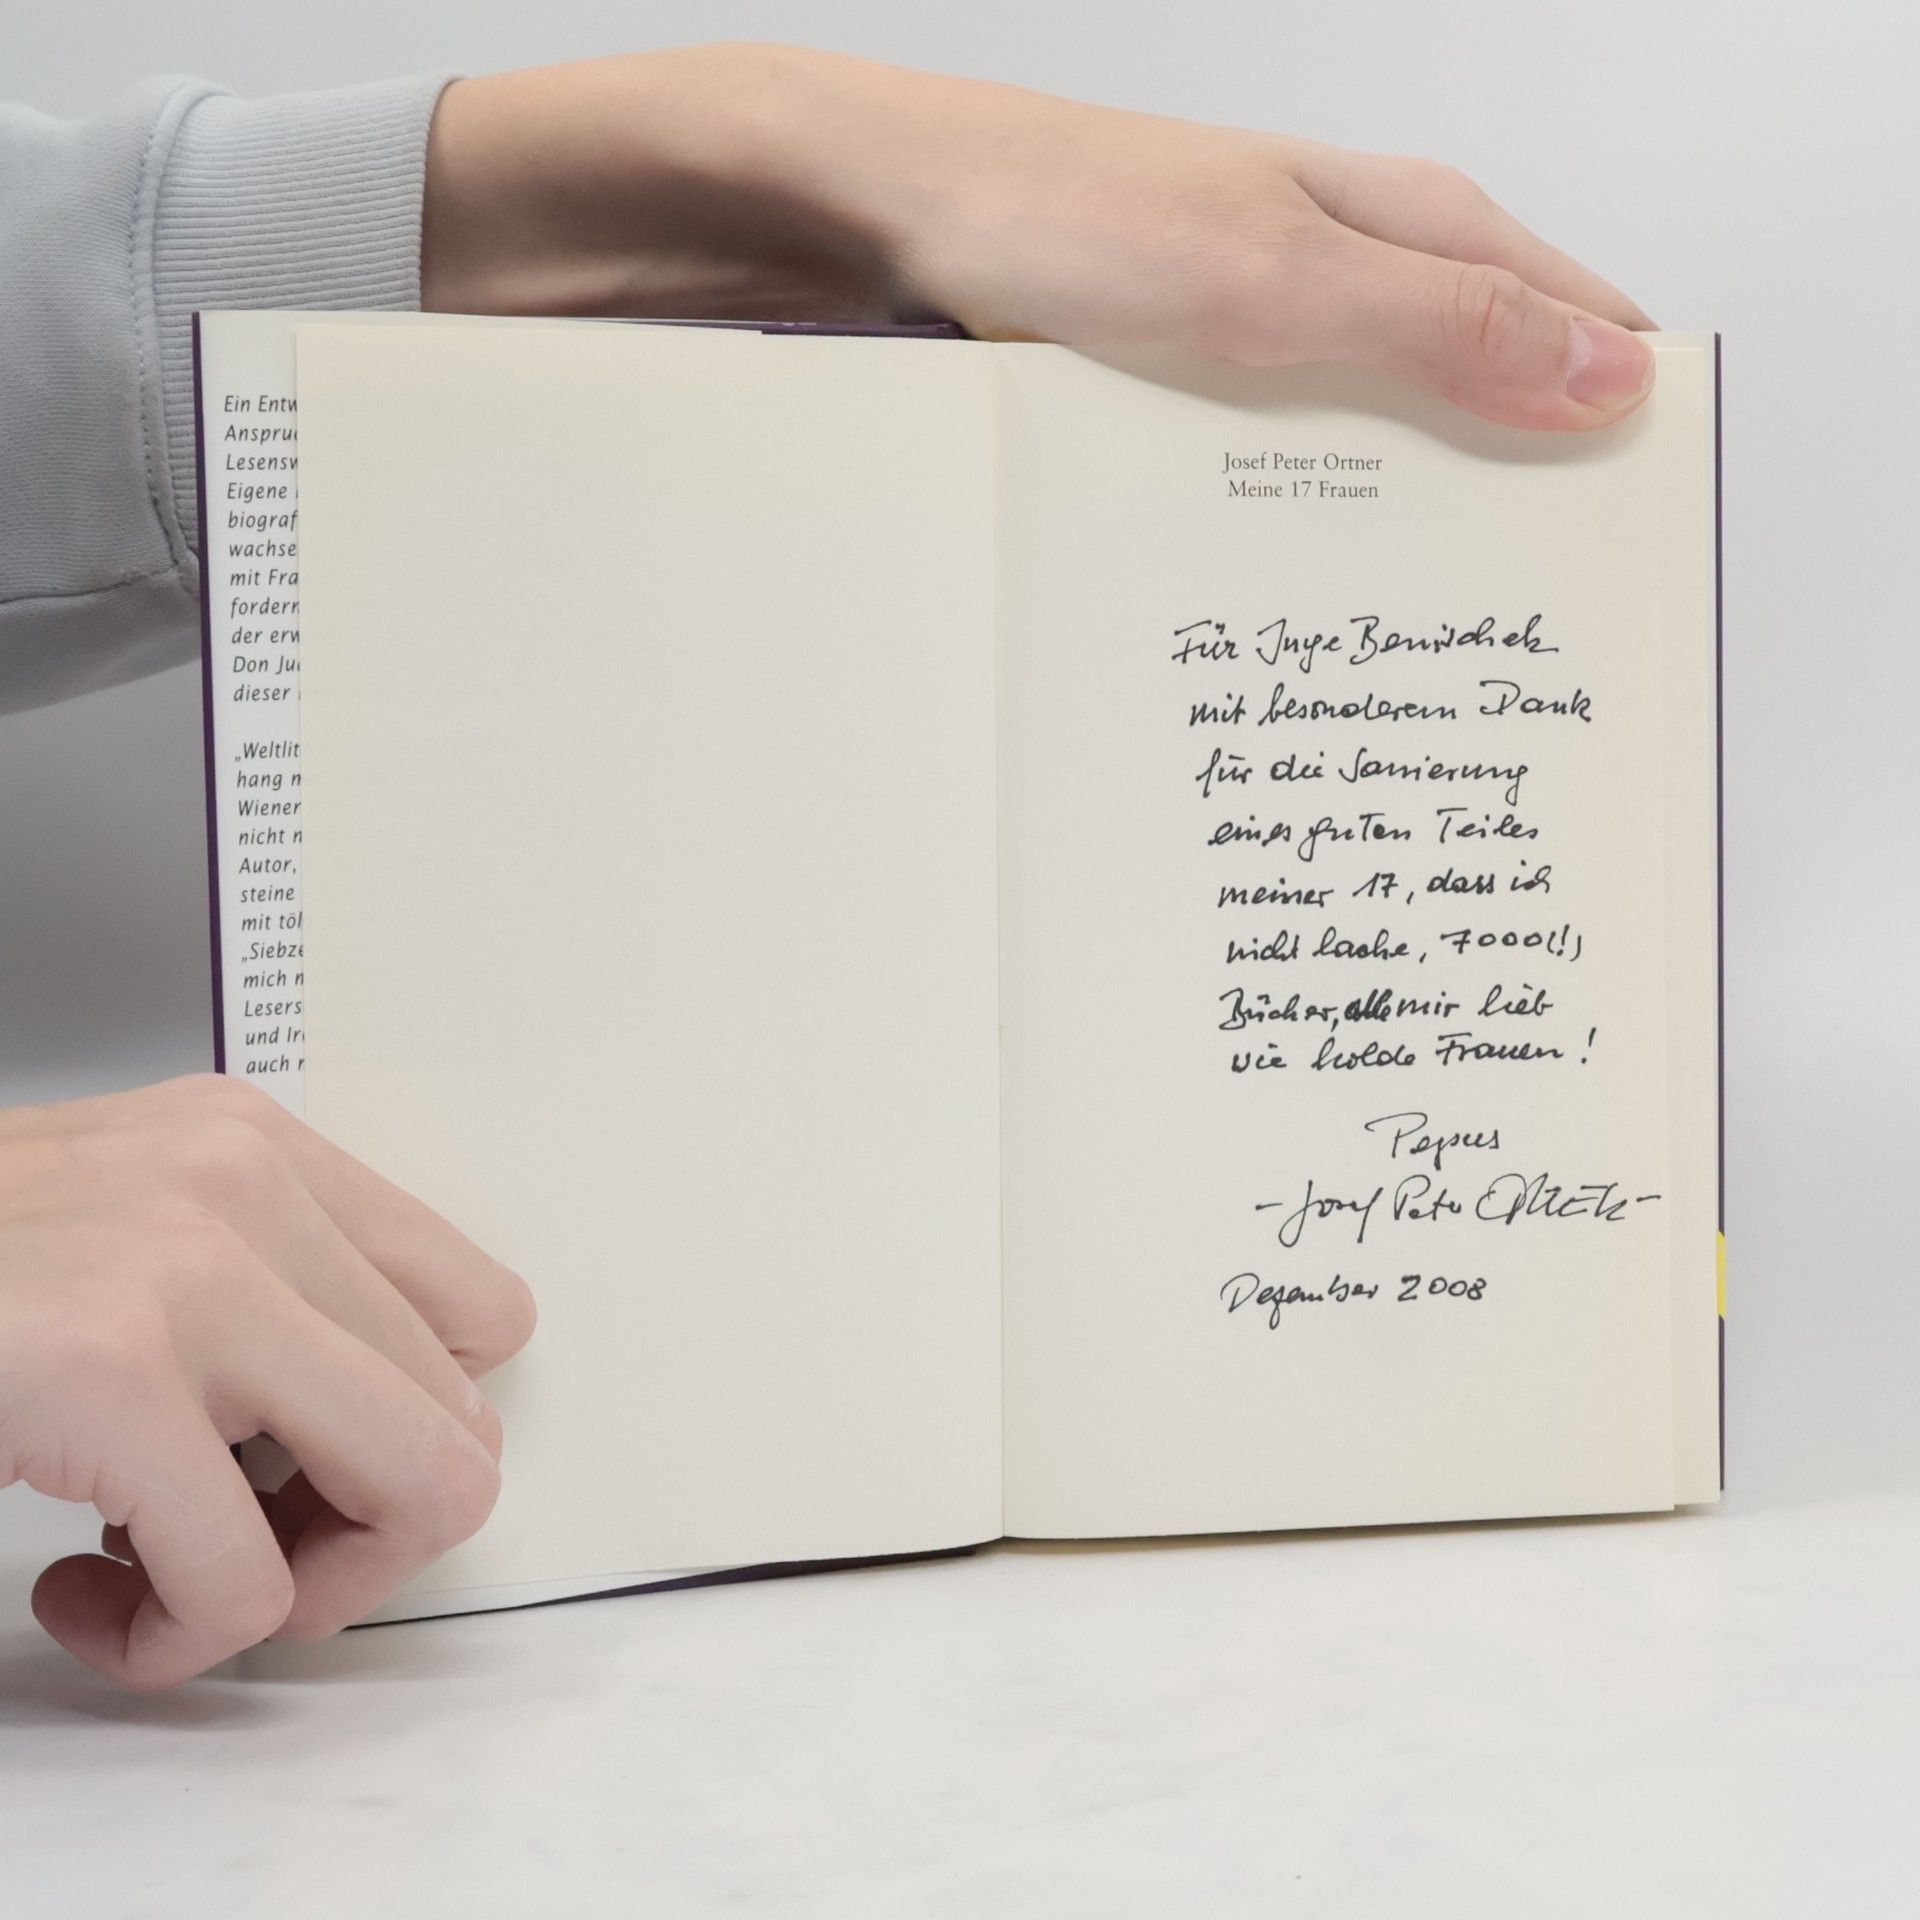 Ein Entw
Anspruc
Lesensw
Eigene
biograf
wachse
mit Fra
fordern
der erw
Don Jua
dieser
„Weltlit
hang n
Wiener
nicht n
Autor,
steine
mit töl
„Siebze
mich n
Lesers
und Iro
auch r
Josef Peter Ortner
Meine 17 Frauen
Für Inge Benischek
mit besonderem Dank
für die Sanierung
eines guten Teiles
meiner 17, dass ich
nicht lache, 7000(!)
Bücher, alle mir lieb
wie holde Frauen!
- Josef Peter Ortner -
Dezember 2008